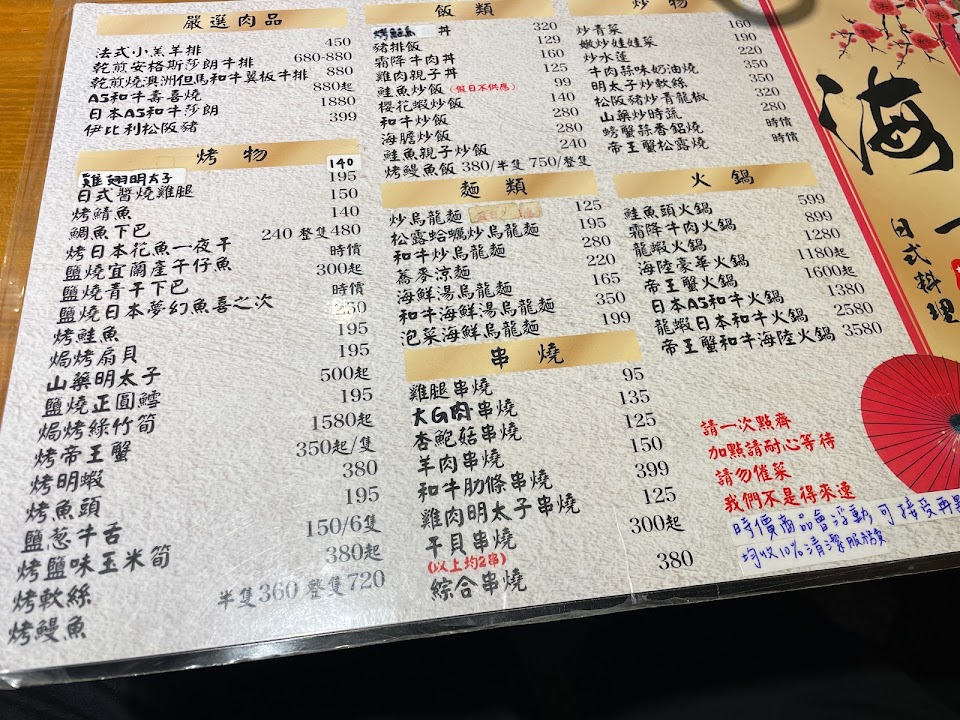 嚴選肉品
法式小羔羊排 450
乾煎安格斯莎朗牛排 680-880
乾煎燒澳洲但馬和牛翼板牛排 880
A5和牛壽喜燒 880起
日本A5和牛莎朗 1880
伊比利松阪豬 399
烤物
雞翅明太子 140
日式醬燒雞腿 195
烤鯖魚 150
鯛魚下巴 140
烤日本花魚一夜干 240 整隻480
鹽燒宜蘭產午仔魚 時價
鹽燒青干下巴 300起
鹽燒日本夢幻魚喜之次 時價
烤鮭魚 250
焗烤扇貝 195
山藥明太子 195
鹽燒正圓鱈 500起
焗烤綠竹筍 195
烤帝王蟹 1580起
烤明蝦 350起/隻
烤魚頭 380
鹽蔥牛舌 195
烤鹽味玉米筍 150/6隻
烤軟絲 380起
烤鰻魚 半隻360 整隻720
飯類
丼 320
豬排飯 129
霜降牛肉丼 160
雞肉親子丼 125
鮭魚炒飯(假日不供應) 99
櫻花蝦炒飯 140
和牛炒飯 280
海膽炒飯 280
鮭魚親子炒飯 240
烤鰻魚飯 380/半隻 750/整隻
麵類
炒烏龍麵 125
松露蛤蠣炒烏龍麵 195
和牛炒烏龍麵 280
蕎麥涼麵 220
海鮮湯烏龍麵 165
和牛海鮮湯烏龍麵 350
泡菜海鮮烏龍麵 199
串燒
雞腿串燒 95
大G肉串燒 135
杏鮑菇串燒 125
羊肉串燒 150
和牛肋條串燒 399
雞肉明太子串燒 125
干貝串燒 300起
(以上均2串)
綜合串燒 380
炒物
炒青菜 160
嫩炒娃娃菜 190
炒水蓮 220
牛肉蒜味奶油燒 350
明太子炒軟絲 350
松阪豬炒青龍椒 320
山藥炒時蔬 280
螃蟹蒜香鋁燒 時價
帝王蟹松露燒 時價
火鍋
鮭魚頭火鍋 599
霜降牛肉火鍋 899
龍蝦火鍋 1280
海陸豪華火鍋 1180起
帝王蟹火鍋 1600起
日本A5和牛火鍋 1380
龍蝦日本和牛火鍋 2580
帝王蟹和牛海陸火鍋 3580
請一次點齊
加點請耐心等待
請勿催菜
我們不是得來速
時價商品會浮動 可接受再
均收10%清潔服務費
海一
日式料理